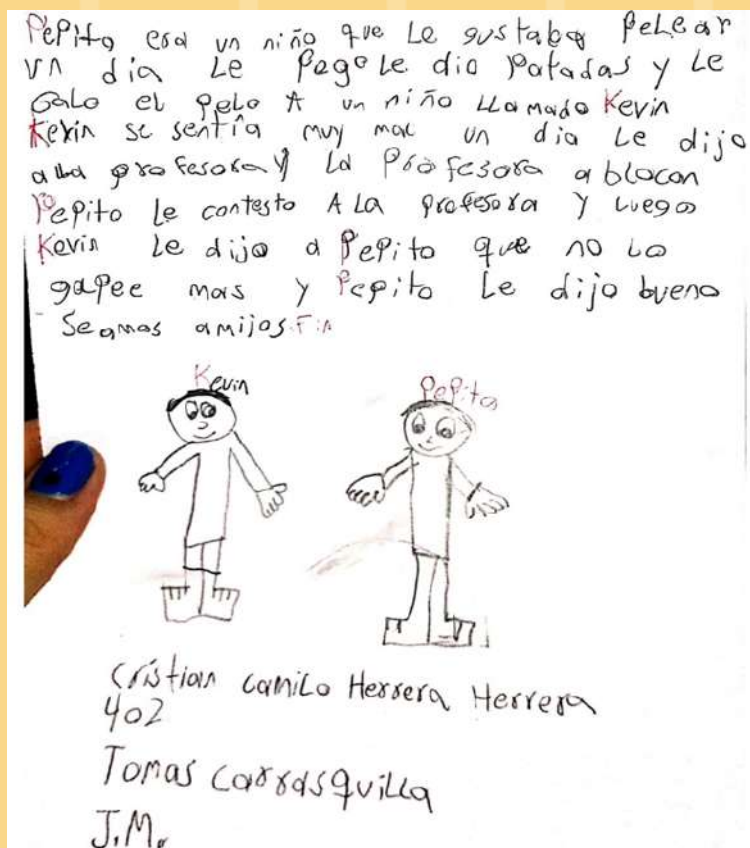 Pepito era un niño que Le gustaba Pelear
un dia Le Pego Le dio Patadas y Le
Galo el Pelo A un niño LLamado Kevin
Kevin se sentía muy mal un dia Le dijo
a la profesora y La Profesora ablocon
Pepito Le contesto A La profesora y Luego
Kevin Le dijo a Pepito que no Lo
gapee mas y Pepito Le dijo bueno
Seamos amijos Fin
Kevin
Pepito
Cristian camiLo Herrera Herrera
402
Tomas carrasquiLLa
J.M.